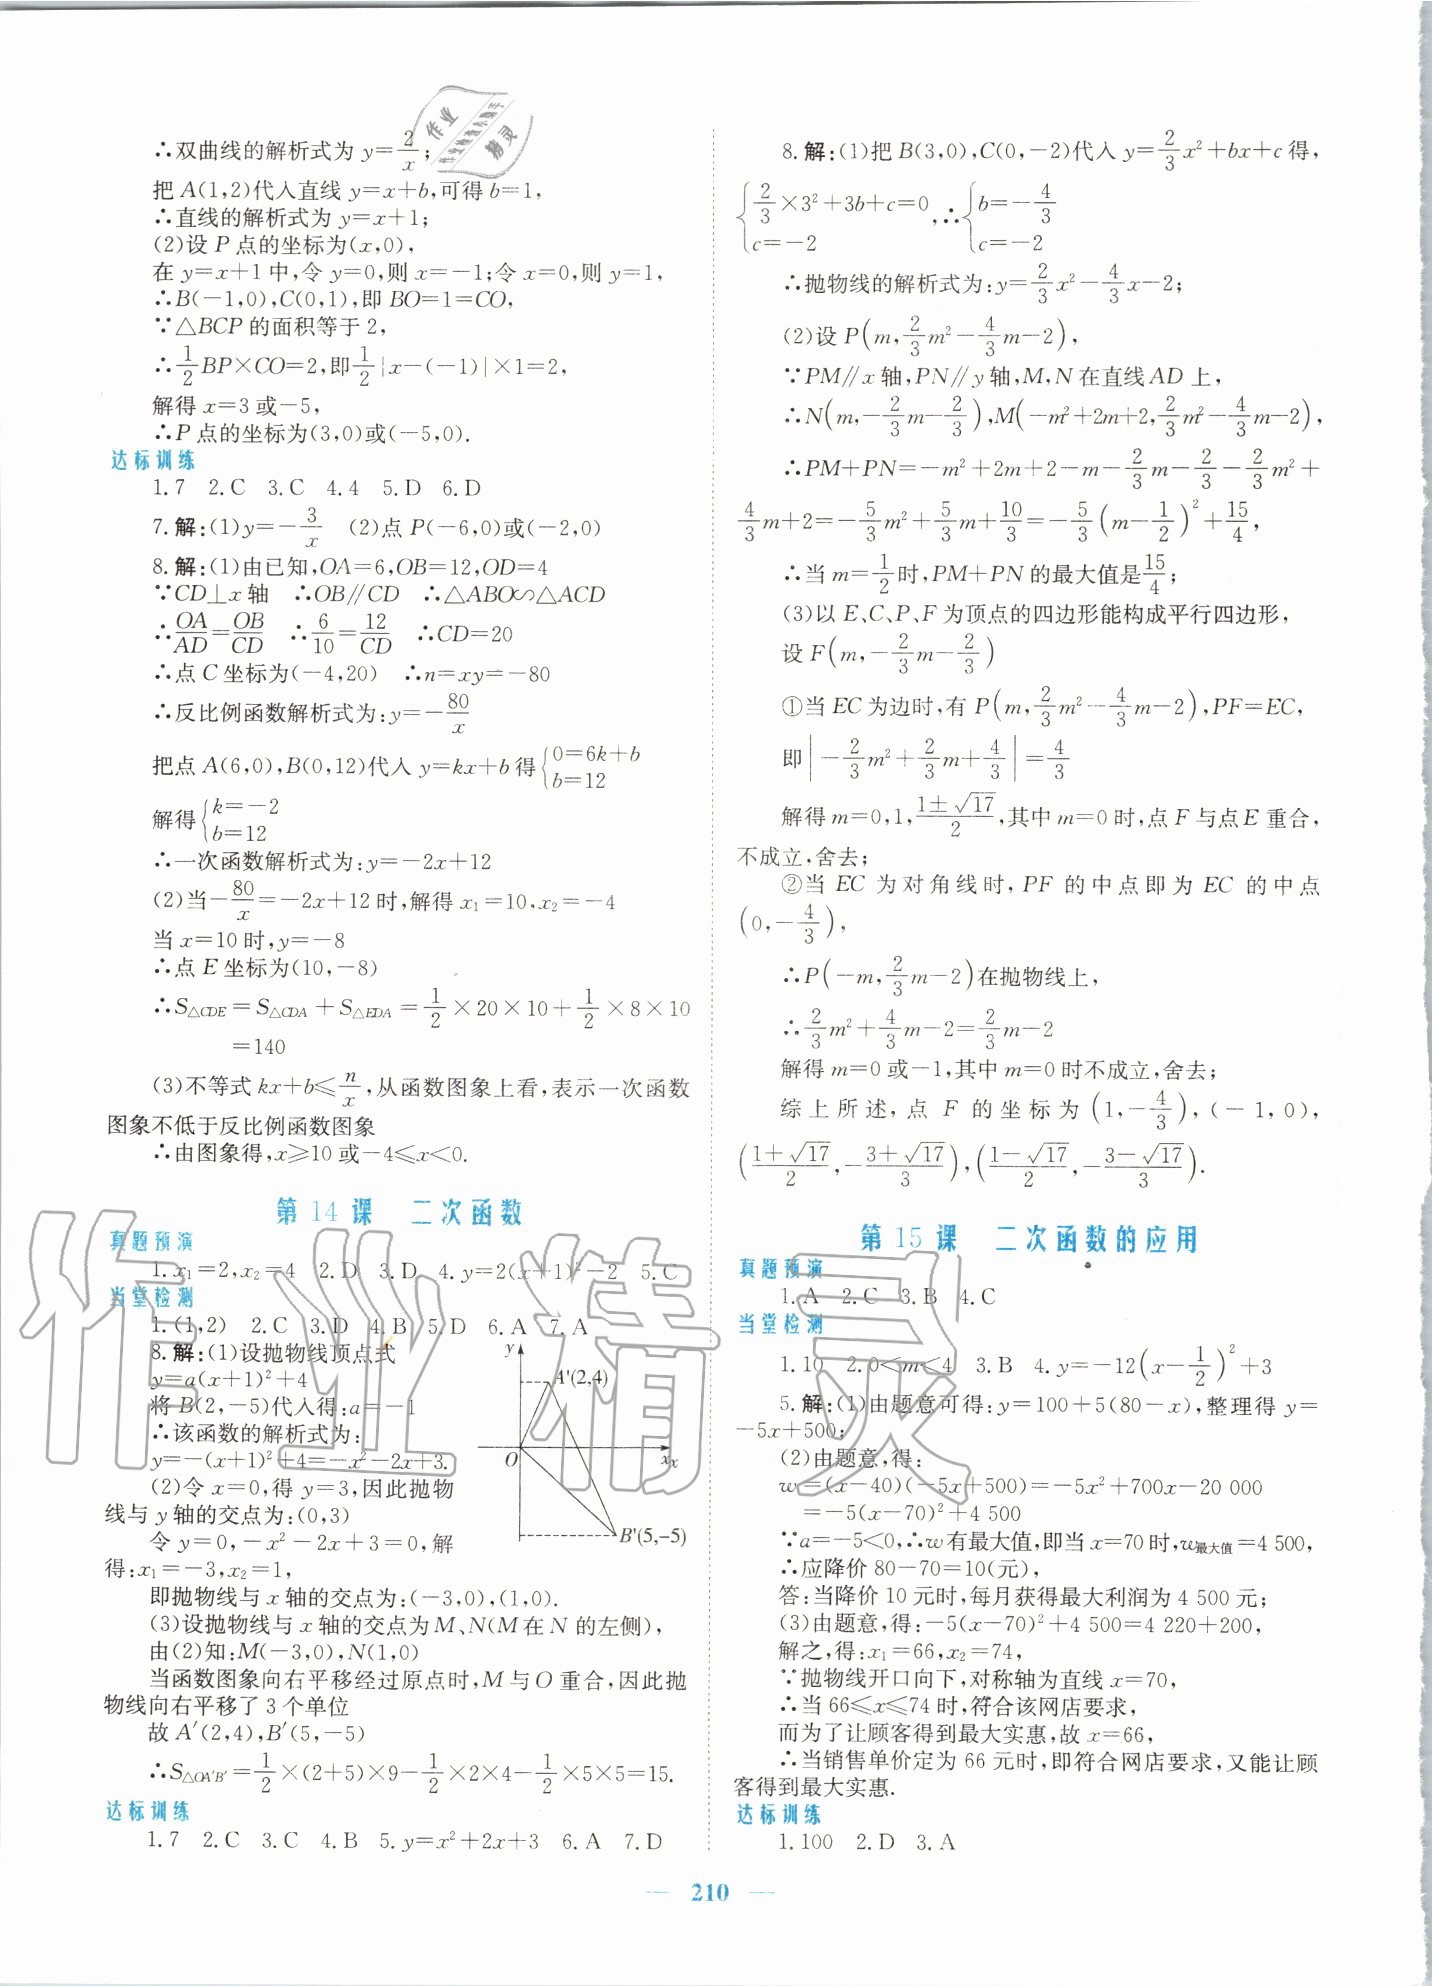 ∴双曲线的解析式为 y=2/x;
把 A(1,2)代入直线 y=x+b,可得 b=1,
∴直线的解析式为 y=x+1;
(2)设 P 点的坐标为(x,0),
在 y=x+1 中,令 y=0,则 x=-1;令 x=0,则 y=1,
∴B(-1,0),C(0,1),即 BO=1=CO,
∵△BCP 的面积等于 2,
∴1/2 BP×CO=2,即1/2|x-(-1)|×1=2,
解得 x=3 或-5,
∴P 点的坐标为(3,0)或(-5,0).
达标训练
1.7 2.C 3.C 4.4 5.D 6.D
7.解:(1)y=-3/x (2)点 P(-6,0)或(-2,0)
8.解:(1)由已知,OA=6,OB=12,OD=4
∵CD⊥x 轴 ∴OB∥CD ∴△ABO∽△ACD
∴OA/AD=OB/CD ∴6/10=12/CD ∴CD=20
∴点 C 坐标为(-4,20) ∴n=xy=-80
∴反比例函数解析式为:y=-80/x
把点 A(6,0),B(0,12)代入 y=kx+b 得{0=6k+b
b=12
解得{k=-2
b=12
∴一次函数解析式为:y=-2x+12
(2)当-80/x=-2x+12 时,解得 x₁=10,x₂=-4
当 x=10 时,y=-8
∴点 E 坐标为(10,-8)
∴S△CDE=S△CDA+S△EDA=1/2×20×10+1/2×8×10
=140
(3)不等式 kx+b≤n/x,从函数图象上看,表示一次函数
图象不低于反比例函数图象
∴由图象得,x≥10 或-4≤x<0.
第 14 课 二次函数
真题预演
1.x₁=2,x₂=4 2.D 3.D 4.y=2(x+1)²-2 5.C
当堂检测
1.(1,2) 2.C 3.D 4.B 5.D 6.A 7.A
8.解:(1)设抛物线顶点式
y=a(x+1)²+4
将 B(2,-5)代入得:a=-1
∴该函数的解析式为:
y=-(x+1)²+4=-x²-2x+3.
(2)令 x=0,得 y=3,因此抛物
线与 y 轴的交点为:(0,3)
令 y=0,-x²-2x+3=0,解
得:x₁=-3,x₂=1,
y
A'(2,4)
O
x
B'(5,-5)
即抛物线与 x 轴的交点为:(-3,0),(1,0).
(3)设抛物线与 x 轴的交点为 M、N(M 在 N 的左侧),
由(2)知:M(-3,0),N(1,0)
当函数图象向右平移经过原点时,M 与 O 重合,因此抛
物线向右平移了 3 个单位
故 A′(2,4),B′(5,-5)
∴S△OA′B′=1/2×(2+5)×9-1/2×2×4-1/2×5×5=15.
达标训练
1.7 2.C 3.C 4.B 5.y=x²+2x+3 6.A 7.D
8.解:(1)把 B(3,0),C(0,-2)代入 y=2/3x²+bx+c 得,
{2/3×3²+3b+c=0
c=-2 ,∴{b=-4/3
c=-2
∴抛物线的解析式为:y=2/3x²-4/3x-2;
(2)设 P(m,2/3m²-4/3m-2),
∵PM∥x 轴,PN∥y 轴,M,N 在直线 AD 上,
∴N(m,-2/3m-2/3),M(-m²+2m+2,2/3m²-4/3m-2),
∴PM+PN=-m²+2m+2-m-2/3m-2/3-2/3m²+
4/3m+2=-5/3m²+5/3m+10/3=-5/3(m-1/2)²+15/4,
∴当 m=1/2时,PM+PN 的最大值是15/4;
(3)以 E、C、P、F 为顶点的四边形能构成平行四边形,
设 F(m,-2/3m-2/3)
①当 EC 为边时,有 P(m,2/3m²-4/3m-2),PF=EC,
即|-2/3m²+2/3m+4/3|=4/3
解得 m=0,1,(1±√17)/2,其中 m=0 时,点 F 与点 E 重合,
不成立,舍去;
②当 EC 为对角线时,PF 的中点即为 EC 的中点
(0,-4/3),
∴P(-m,2/3m-2)在抛物线上,
∴2/3m²+4/3m-2=2/3m-2
解得 m=0 或-1,其中 m=0 时不成立,舍去;
综上所述,点 F 的坐标为(1,-4/3),(-1,0),
((1+√17)/2,-(3+√17)/3),((1-√17)/2,-(3-√17)/3).
第 15 课 二次函数的应用
真题预演
1.A 2.C 3.B 4.C
当堂检测
1.10 2.0<m<4 3.B 4.y=-12(x-1/2)²+3
5.解:(1)由题意可得:y=100+5(80-x),整理得 y=
-5x+500;
(2)由题意,得:
w=(x-40)(-5x+500)=-5x²+700x-20 000
=-5(x-70)²+4 500
∵a=-5<0,∴w 有最大值,即当 x=70 时,w最大值=4 500,
∴应降价 80-70=10(元),
答:当降价 10 元时,每月获得最大利润为 4 500 元;
(3)由题意,得:-5(x-70)²+4 500=4 220+200,
解之,得:x₁=66,x₂=74,
∵抛物线开口向下,对称轴为直线 x=70,
∴当 66≤x≤74 时,符合该网店要求,
而为了让顾客得到最大实惠,故 x=66,
∴当销售单价定为 66 元时,即符合网店要求,又能让顾
客得到最大实惠.
达标训练
1.100 2.D 3.A
— 210 —
作业精灵